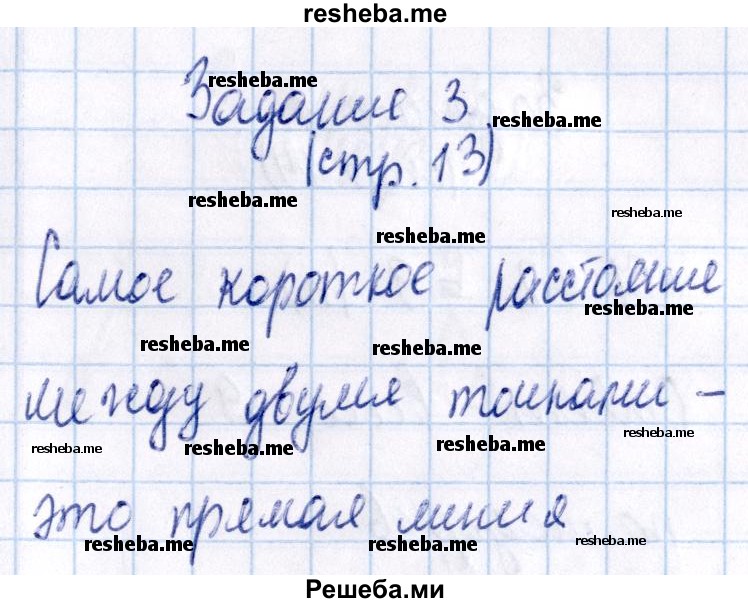 resheba.me
resheba.me
Задание 3
resheba.me
(стр. 13)
resheba.me
resheba.me
resheba.me
Самое короткое расстояние
resheba.me
resheba.me
resheba.me
между двумя точками –
resheba.me
resheba.me
resheba.me
resheba.me
это прямая линия
resheba.me
resheba.me
resheba.me
Решеба.ми